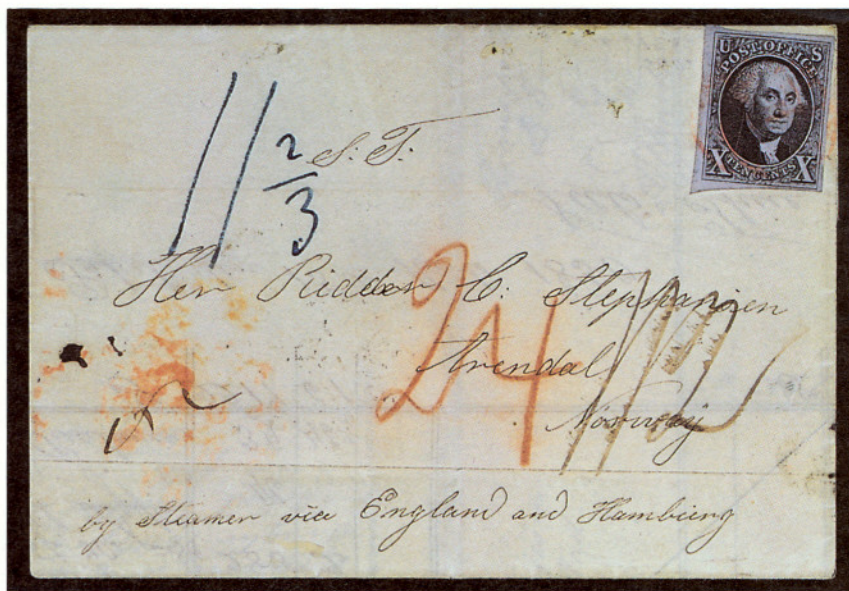 U S
POST OFFICE
X TEN CENTS X
11 2/3
S. T.
Herr Ridder C: Stephansen
Arendal
Norway
24
by Steamer via England and Hamburg